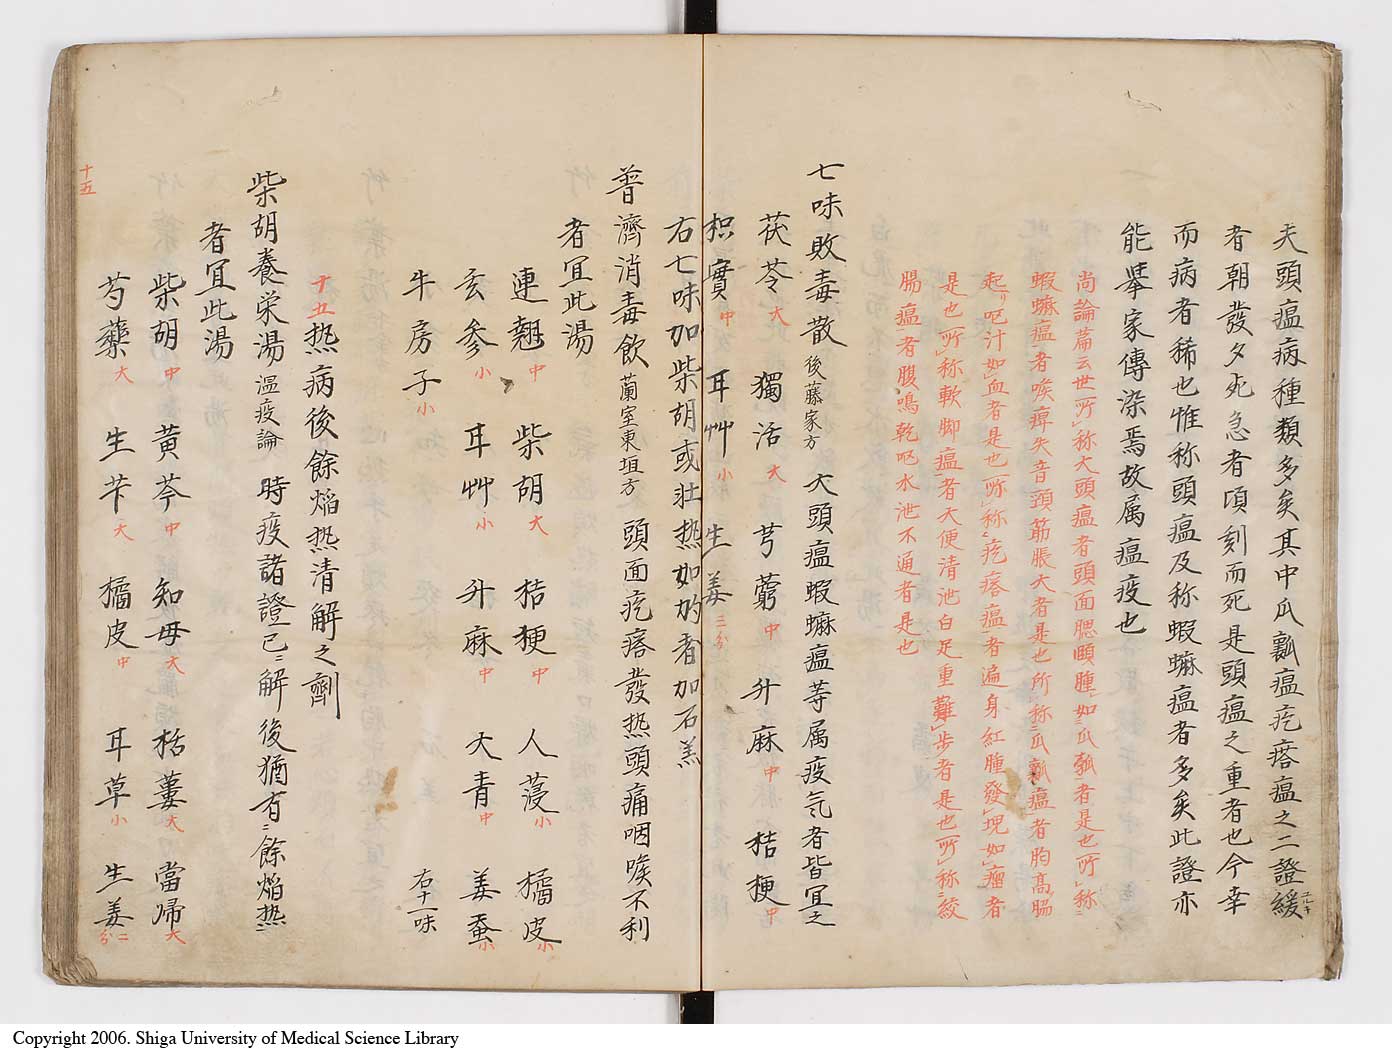 夫頭瘟病種類多矣其中瓜瓤瘟疙瘩瘟之二證緩
者朝發夕死急者頃刻而死是頭瘟之重者也今幸
而病者稀也惟称頭瘟及称蝦蟆瘟者多矣此證亦
能擧家傳染焉故属瘟疫也
尚論篇云世所称大頭瘟者頭面腮頤腫如瓜瓠者是也所称
蝦蟆瘟者喉痺失音頭筋脹大者是也所称瓜瓤瘟者胸高脇
起リ呕汁如血者是也所称疙瘩瘟者遍身紅腫發塊如瘤者
是也所称軟脚瘟者大便清泄白足重難歩者是也所称絞
腸瘟者腹鳴乾呕水泄不通者是也
七味敗毒散 後藤家方 大頭瘟蝦蟆瘟等属疫気者皆宜之
茯苓大 獨活大 芎藭中 升麻中 桔梗中
枳實中 耳艸小 生姜三分
右七味加柴胡或壮热如灼者加石羔
普濟消毒飲 蘭室東垣方 頭面疙瘩發热頭痛咽喉不利
者宜此湯
連翹中 柴胡大 桔梗中 人蓡小 橘皮小
玄参小 耳艸小 升麻中 大青中 姜蚕小
牛房子小 右十一味
十五 热病後餘焔热清解之劑
柴胡養栄湯 温疫論 時疫諸證已ニ解後猶有ニ餘焔热
者宜此湯
柴胡中 黄芩中 知母大 栝蔞大 當帰大
芍藥大 生芐大 橘皮中 耳草小 生姜二分
十五
Copyright 2006. Shiga University of Medical Science Library